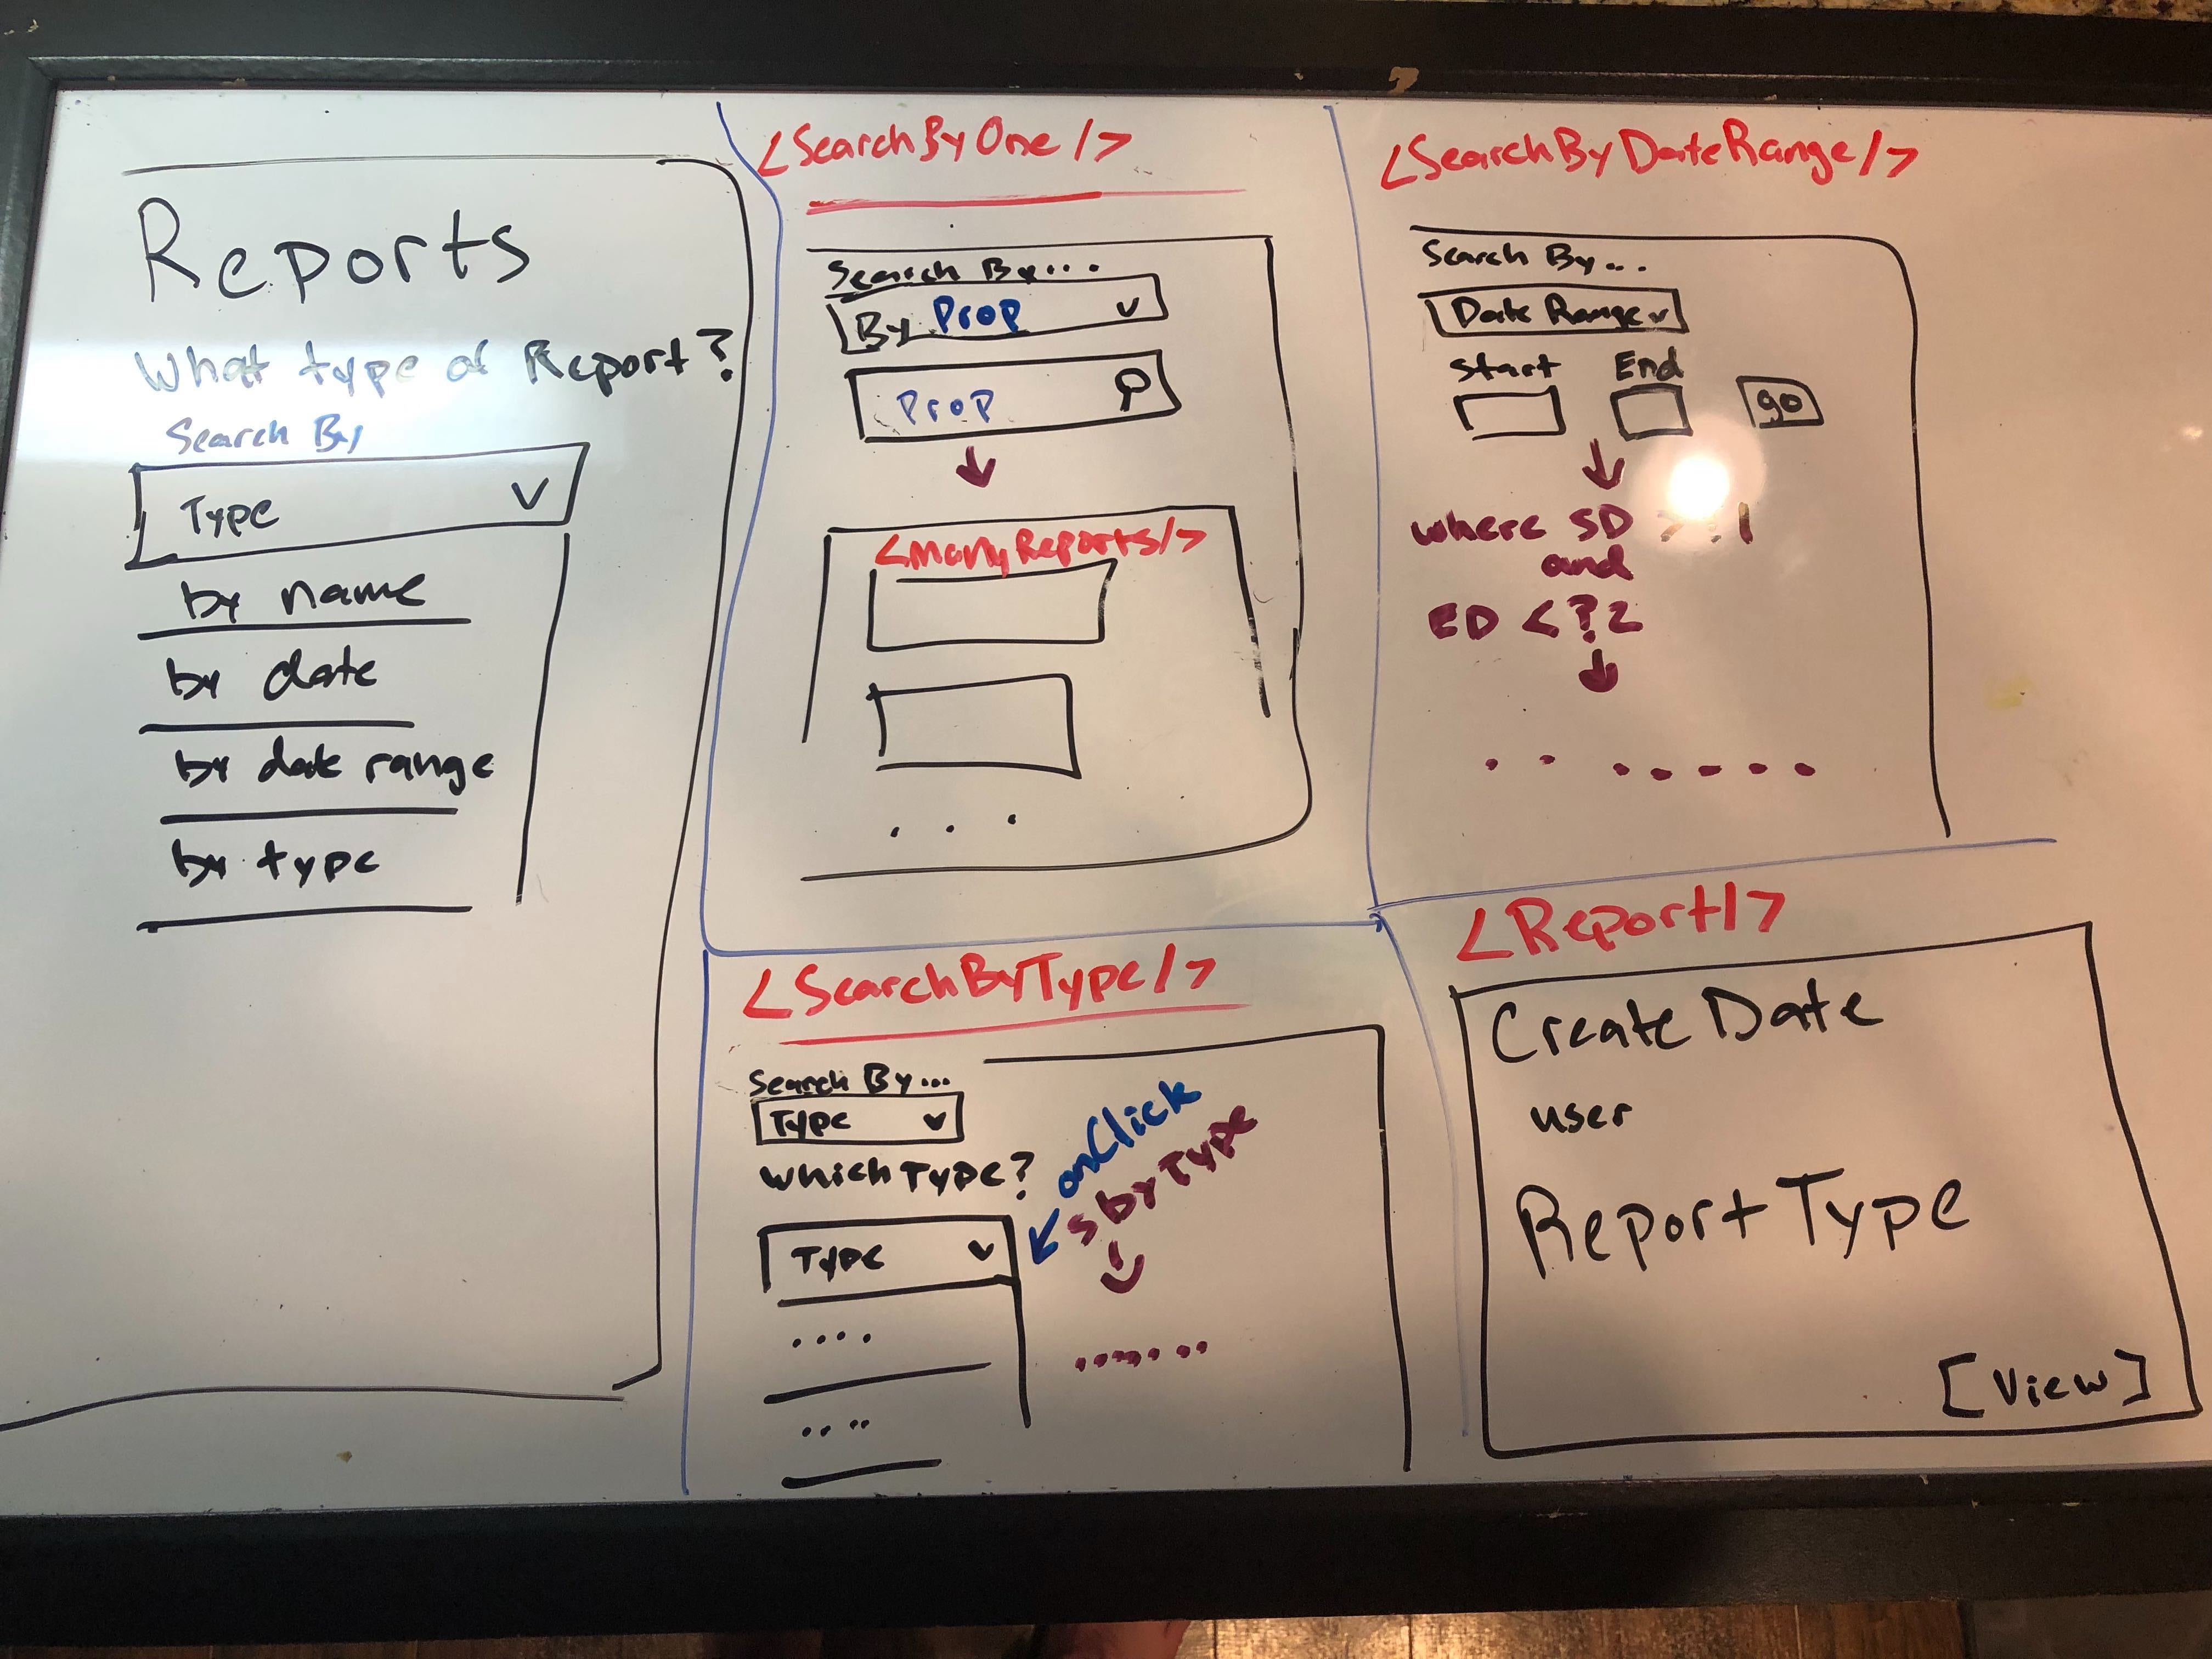 Reports
What type of Report?
Search By
Type
by name
by date
by date range
by type
<SearchByOne/>
Search By...
By Prop
Prop
<ManyReports/>
...
<SearchByDateRange/>
Search By...
Date Range
Start End
go
where SD
and
ED < ?2
.......
<SearchByType/>
Search By...
Type
which Type?
onClick
s by Type
Type
....
....
......
<Report/>
Create Date
user
Report Type
[View]